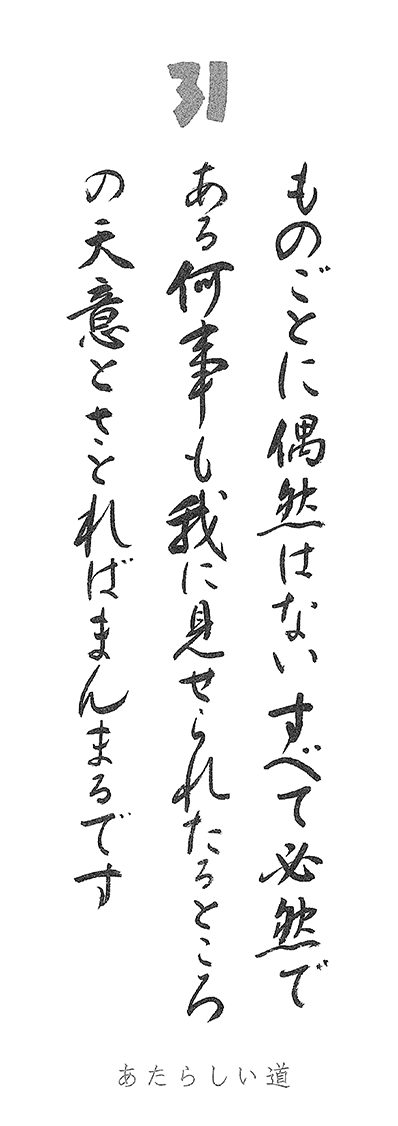 31
ものごとに偶然はないすべて必然で
ある何事も我に見せられたるところ
の天意とさとればまんまるです
あたらしい道